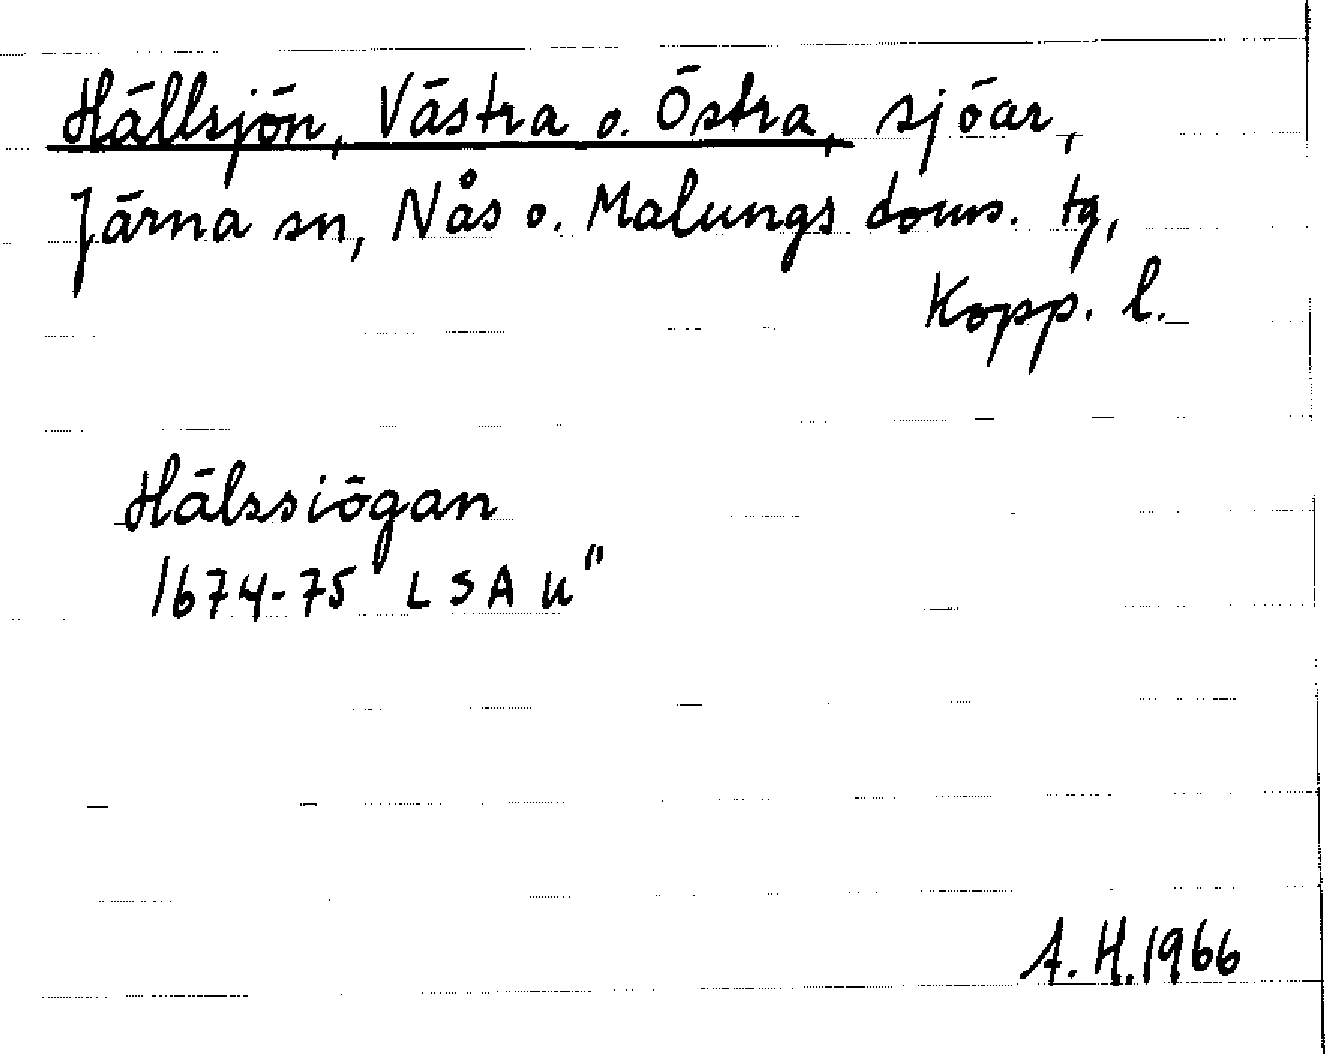 Hällsjön, Västra o. Östra, sjöar,
Järna sn, Nås o. Malungs doms. tg,
Kopp. l.
Hälssiögan
1674-75 "LSA u"
A. H. 1966